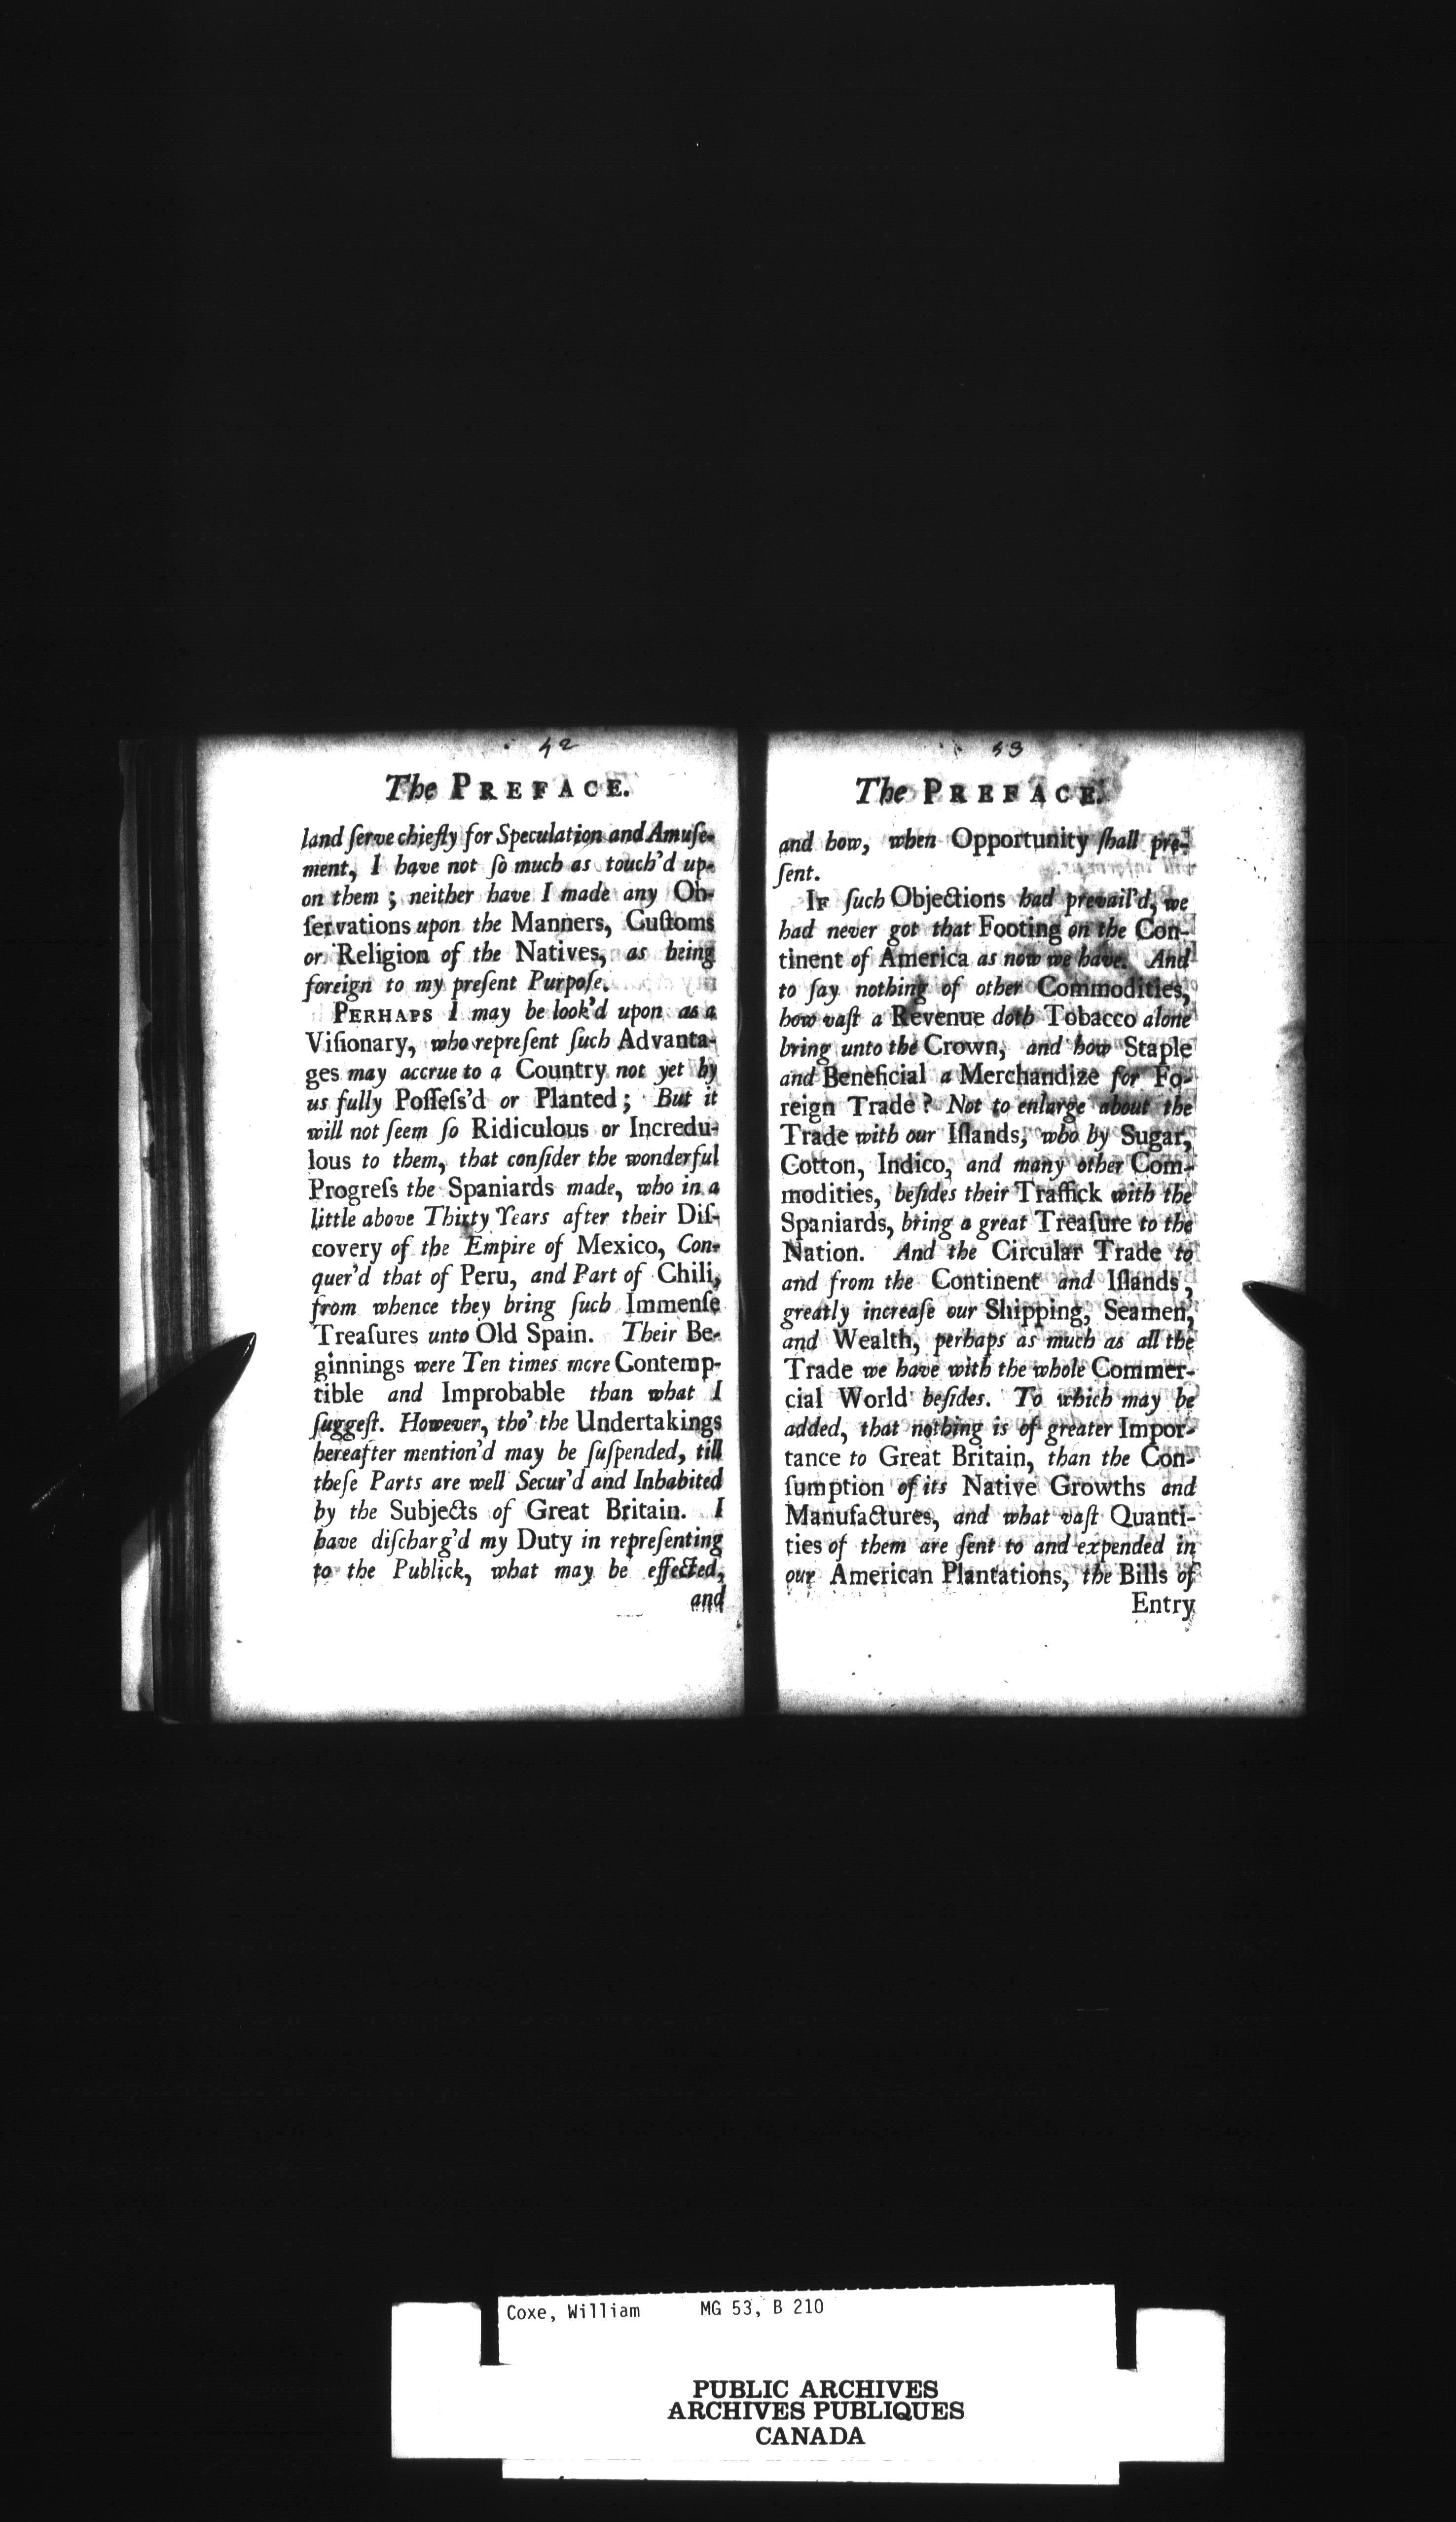 42
The PREFACE.
land ſerve chiefly for Speculation and Amuſe-
ment, I have not ſo much as touch'd up-
on them ; neither have I made any Ob-
ſervations upon the Manners, Cuſtoms
or Religion of the Natives, as being
foreign to my preſent Purpoſe.
PERHAPS I may be look'd upon as a
Viſionary, who repreſent ſuch Advanta-
ges may accrue to a Country not yet by
us fully Poſſeſs'd or Planted ; But it
will not ſeem ſo Ridiculous or Incredu-
lous to them, that conſider the wonderful
Progreſs the Spaniards made, who in a
little above Thirty Years after their Diſ-
covery of the Empire of Mexico, Con-
quer'd that of Peru, and Part of Chili,
from whence they bring ſuch Immenſe
Treaſures unto Old Spain. Their Be-
ginnings were Ten times more Contemp-
tible and Improbable than what I
ſuggeſt. However, tho' the Undertakings
hereafter mention'd may be ſuſpended, till
theſe Parts are well Secur'd and Inhabited
by the Subjects of Great Britain. I
have diſcharg'd my Duty in repreſenting
to the Publick, what may be effected,
and
53
The PREFACE.
and how, when Opportunity ſhall pre-
ſent.
IF ſuch Objections had prevail'd, we
had never got that Footing on the Con-
tinent of America as now we have. And
to ſay nothing of other Commodities,
how vaſt a Revenue doth Tobacco alone
bring unto the Crown, and how Staple
and Beneficial a Merchandize for Fo-
reign Trade ? Not to enlarge about the
Trade with our Iſlands, who by Sugar,
Cotton, Indico, and many other Com-
modities, beſides their Traffick with the
Spaniards, bring a great Treaſure to the
Nation. And the Circular Trade to
and from the Continent and Iſlands,
greatly increaſe our Shipping, Seamen,
and Wealth, perhaps as much as all the
Trade we have with the whole Commer-
cial World beſides. To which may be
added, that nothing is of greater Impor-
tance to Great Britain, than the Con-
ſumption of its Native Growths and
Manufactures, and what vaſt Quanti-
ties of them are ſent to and expended in
our American Plantations, the Bills of
Entry
Coxe, William MG 53, B 210
PUBLIC ARCHIVES
ARCHIVES PUBLIQUES
CANADA